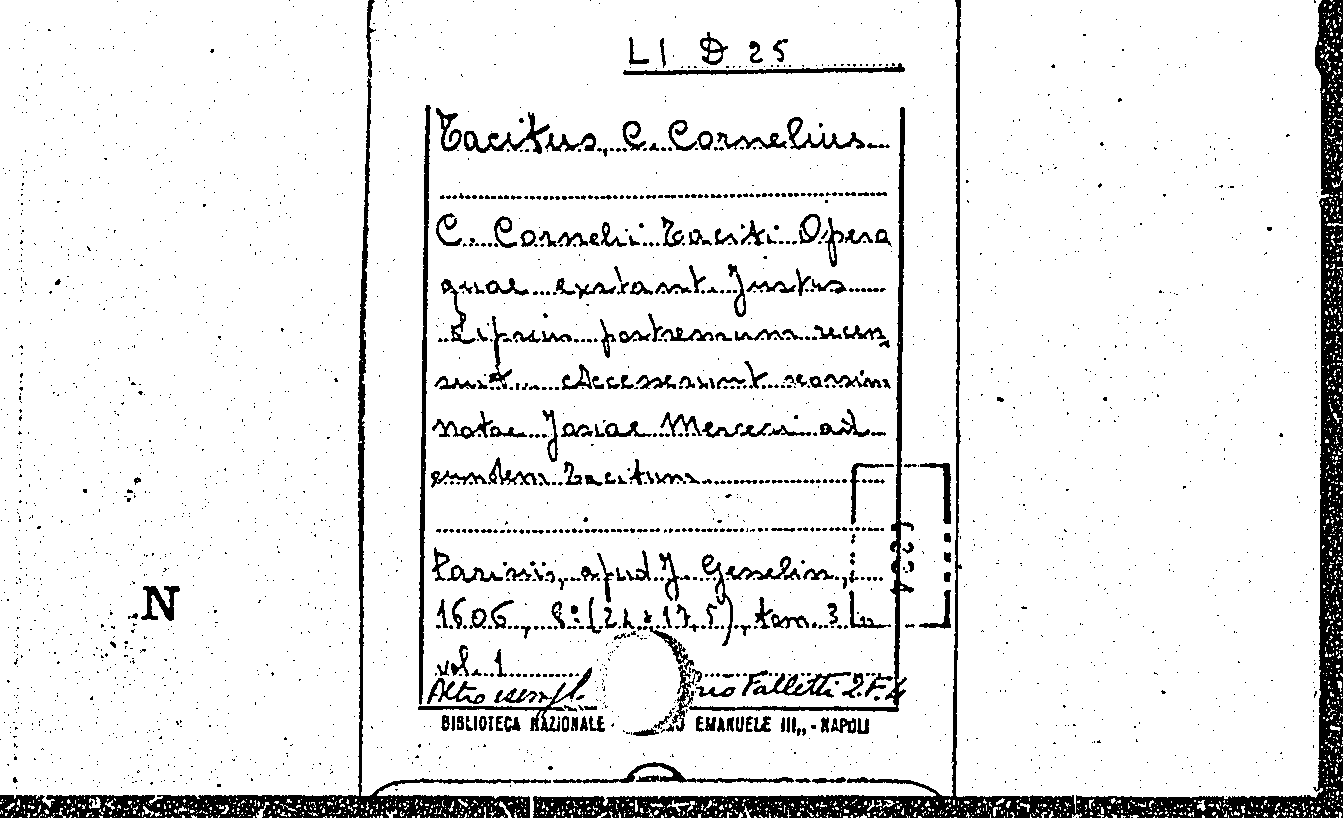 LI D 25
Tacitus, C. Cornelius
C. Cornelii Taciti Opera
quae exstant. Justus
Lipsius postremum recen
suit. Accesserunt seorsim
notae Josiae Merceri ad
eumdem Tacitum
Parisiis, apud J. Gesselin,
1606, 8° (24 x 17,5), tom. 3 in
vol. 1
Altro esempl. rio Falletti 2.F.4
BIBLIOTECA NAZIONALE EMANUELE III„ - NAPOLI
N